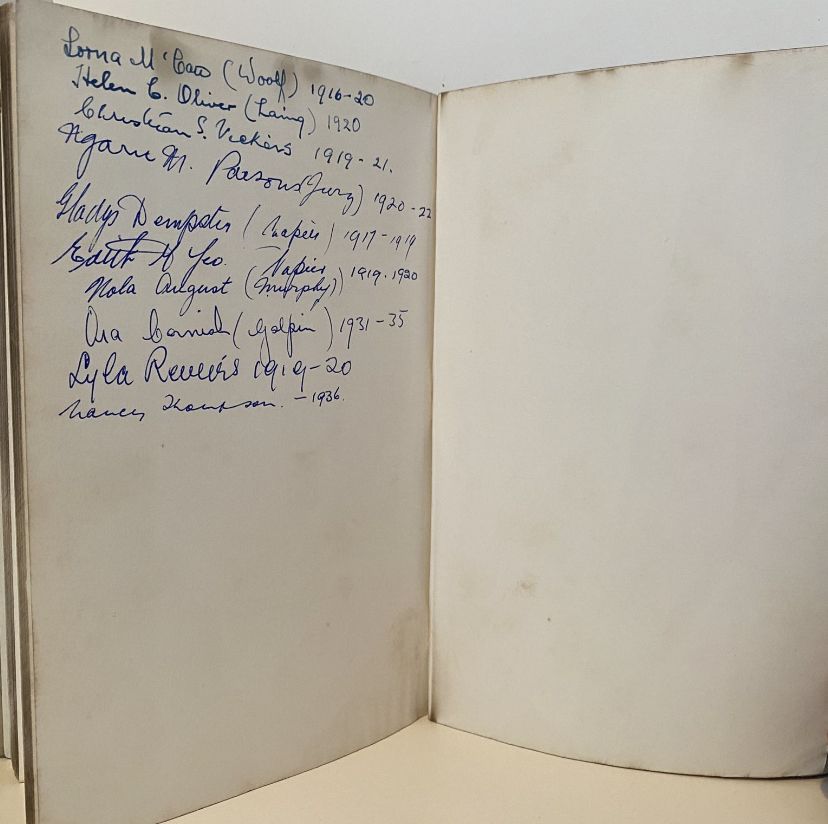 Lorna M'Caw (Woolf) 1916-20
Helen C. Oliver (Laing) 1920
Christian S. Vickers 1919-21.
M. Parsons (Jury) 1920-22
Gladys Dempster (Napier) 1917-1919
Edith M Yeo. Napier 1919.1920
Nola August (Murphy)
Cornish (Galpin) 1931-35
Lyla 1919-20
Nancy Thompson. -1936.